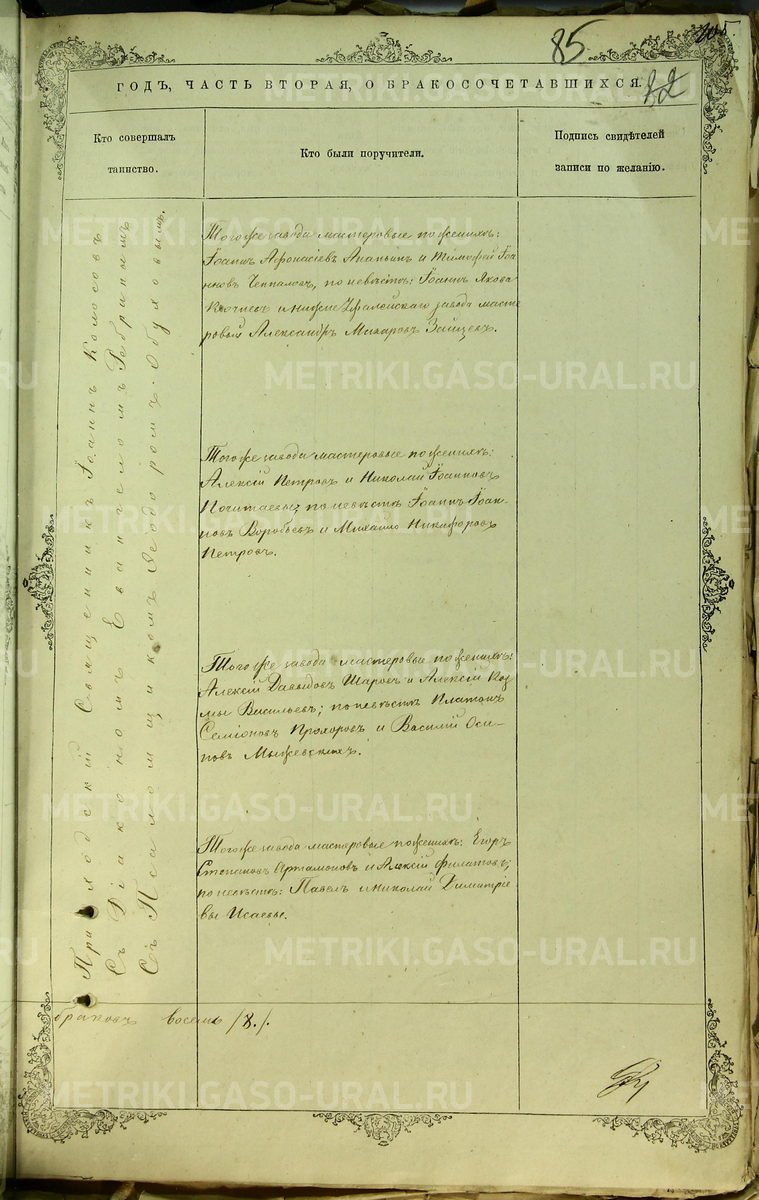 85
205
ГОДЪ, ЧАСТЬ ВТОРАЯ, О БРАКОСОЧЕТАВШИХСЯ.
Кто совершалъ
таинство.
Кто были поручители.
Подпись свидѣтелей
записи по желанію.
Приходскій Священникъ Іоаннъ Колосовъ
Съ Діакономъ Евангеломъ Ребринымъ
Съ Псаломщикомъ Ѳеодоромъ Обуховымъ.
Того же завода мастеровые по женихѣ:
Іоаннъ Аѳонасіевъ Ананьинъ и Тимоѳей Іоа
нновъ по невѣстѣ: Іоаннъ Якова
и Нижне Уфалейскаго завода масте
ровый Александръ Макаровъ Зайцевъ.
Того же завода мастеровые по женихѣ:
Алексій Петровъ и Николай Іоанновъ
по невѣстѣ Іоаннъ Іоан
новъ Воробьевъ и Михаилъ Никифоровъ
Петровъ.
Того же завода мастеровые по женихѣ:
Алексій Давыдовъ Шаровъ и Алексій Коз
мы Васильевъ; по невѣстѣ Платонъ
Семіоновъ Прохоровъ и Василій Оси-
повъ
Того же завода мастеровые по женихѣ: Егоръ
Степановъ Артамоновъ и Алексій Филатовъ;
по невѣстѣ: Павелъ и Николай Димитріе
вы Исаевы.
браковъ восемь /8./.
METRIKI.GASO-URAL.RU